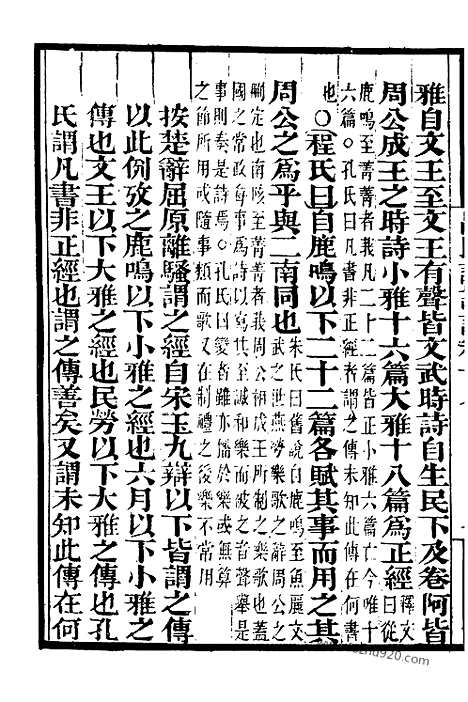 雅自文王至文王有聲皆文武時詩自生民下及卷阿皆
周公成王之時詩小雅十六篇大雅十八篇爲正經釋文
曰從
鹿鳴至菁菁者我凡二十二篇皆正小雅六篇亡今唯十
六篇○孔氏曰凡書非正經者謂之傳未知此傳在何書
也○程氏曰自鹿鳴以下二十二篇各賦其事而用之其
周公之爲乎與二南同也朱氏曰舊說自鹿鳴至魚麗文
武之世燕勞樂歌之辭周公之
刪定也南陔至菁菁者我周公相成王所制之樂歌也蓋
國之常政每事爲詩以寫其至誠和樂而被之音聲舉是
事則奏是詩焉○孔氏曰變者雖亦播於樂或無算
之節所用或隨事類而歌又在制禮之後樂不常用
按楚辭屈原離騷謂之經自宋玉九辯以下皆謂之傳
以此例攷之鹿鳴以下小雅之經也六月以下小雅之
傳也文王以下大雅之經也民勞以下大雅之傳也孔
氏謂凡書非正經也謂之傳善矣又謂未知此傳在何